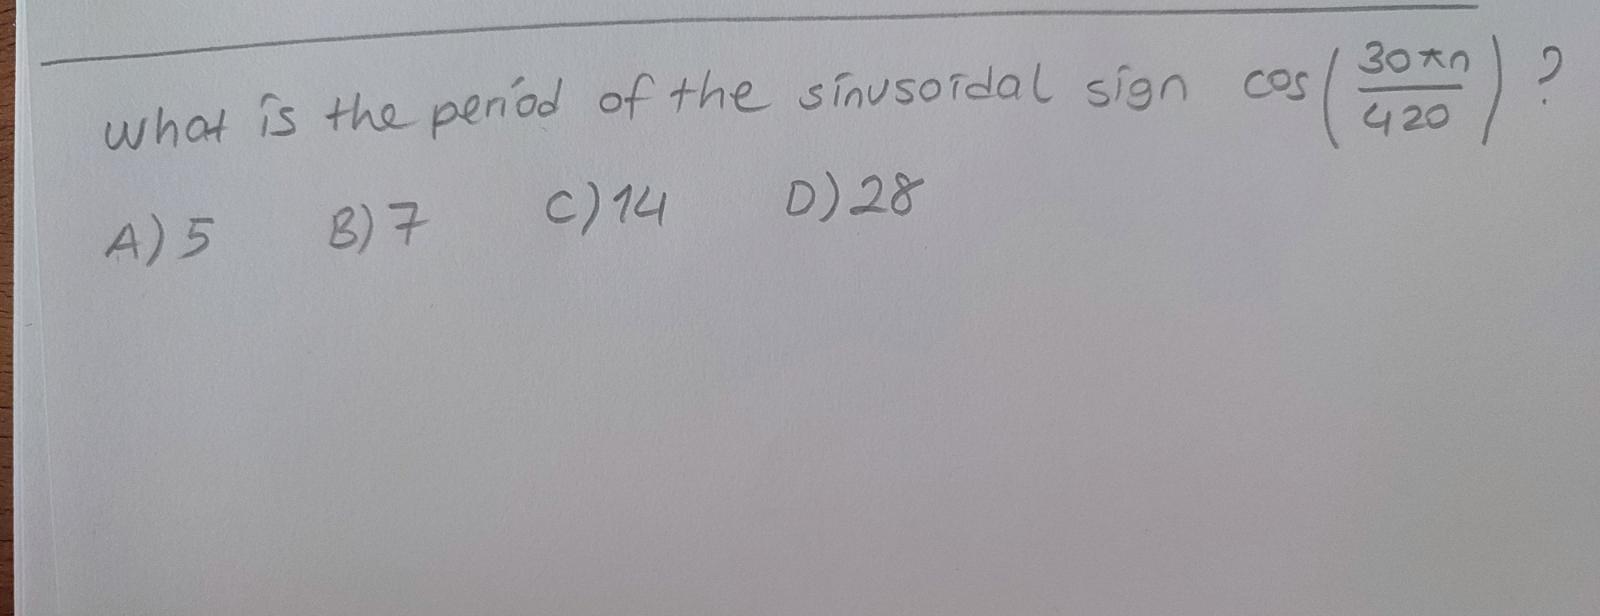 what is the period of the sinusoidal sign cos(30πn/420)?
A) 5 B) 7 C) 14 D) 28